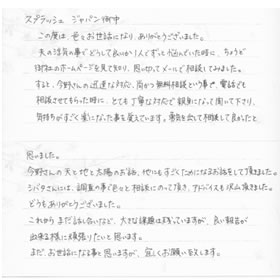 スプラッシュ ジャパン御中
この度は、色々お世話になり、ありがとうございました。
夫の浮気の事でどうして良いか1人でずっと悩んでいた時に、ちょうど
御社のホームページを見て知り、思い切ってメールで相談してみました。
すると、今野さんの迅速な対応、尚かつ無料相談という事で、電話でも
相談させてもらった時に、とても丁寧な対応で親身になって聞いて下さり、
気持ちがすごく楽になった事を覚えています。勇気を出して相談して良かったと
思いました。
今野さんの天と地と太陽のお話、他にもすごくためになるお話をして頂きました。
シバタさんには、調査の事で色々と相談にのって頂き、アドバイスも沢山頂きました。
どうもありがとうございました。
これから まだ話し合いなど、大きな課題は残っていますが、良い報告が
出来る様に頑張りたいと思います。
まだ、お世話になる事と思いますが、宜しくお願い致します。